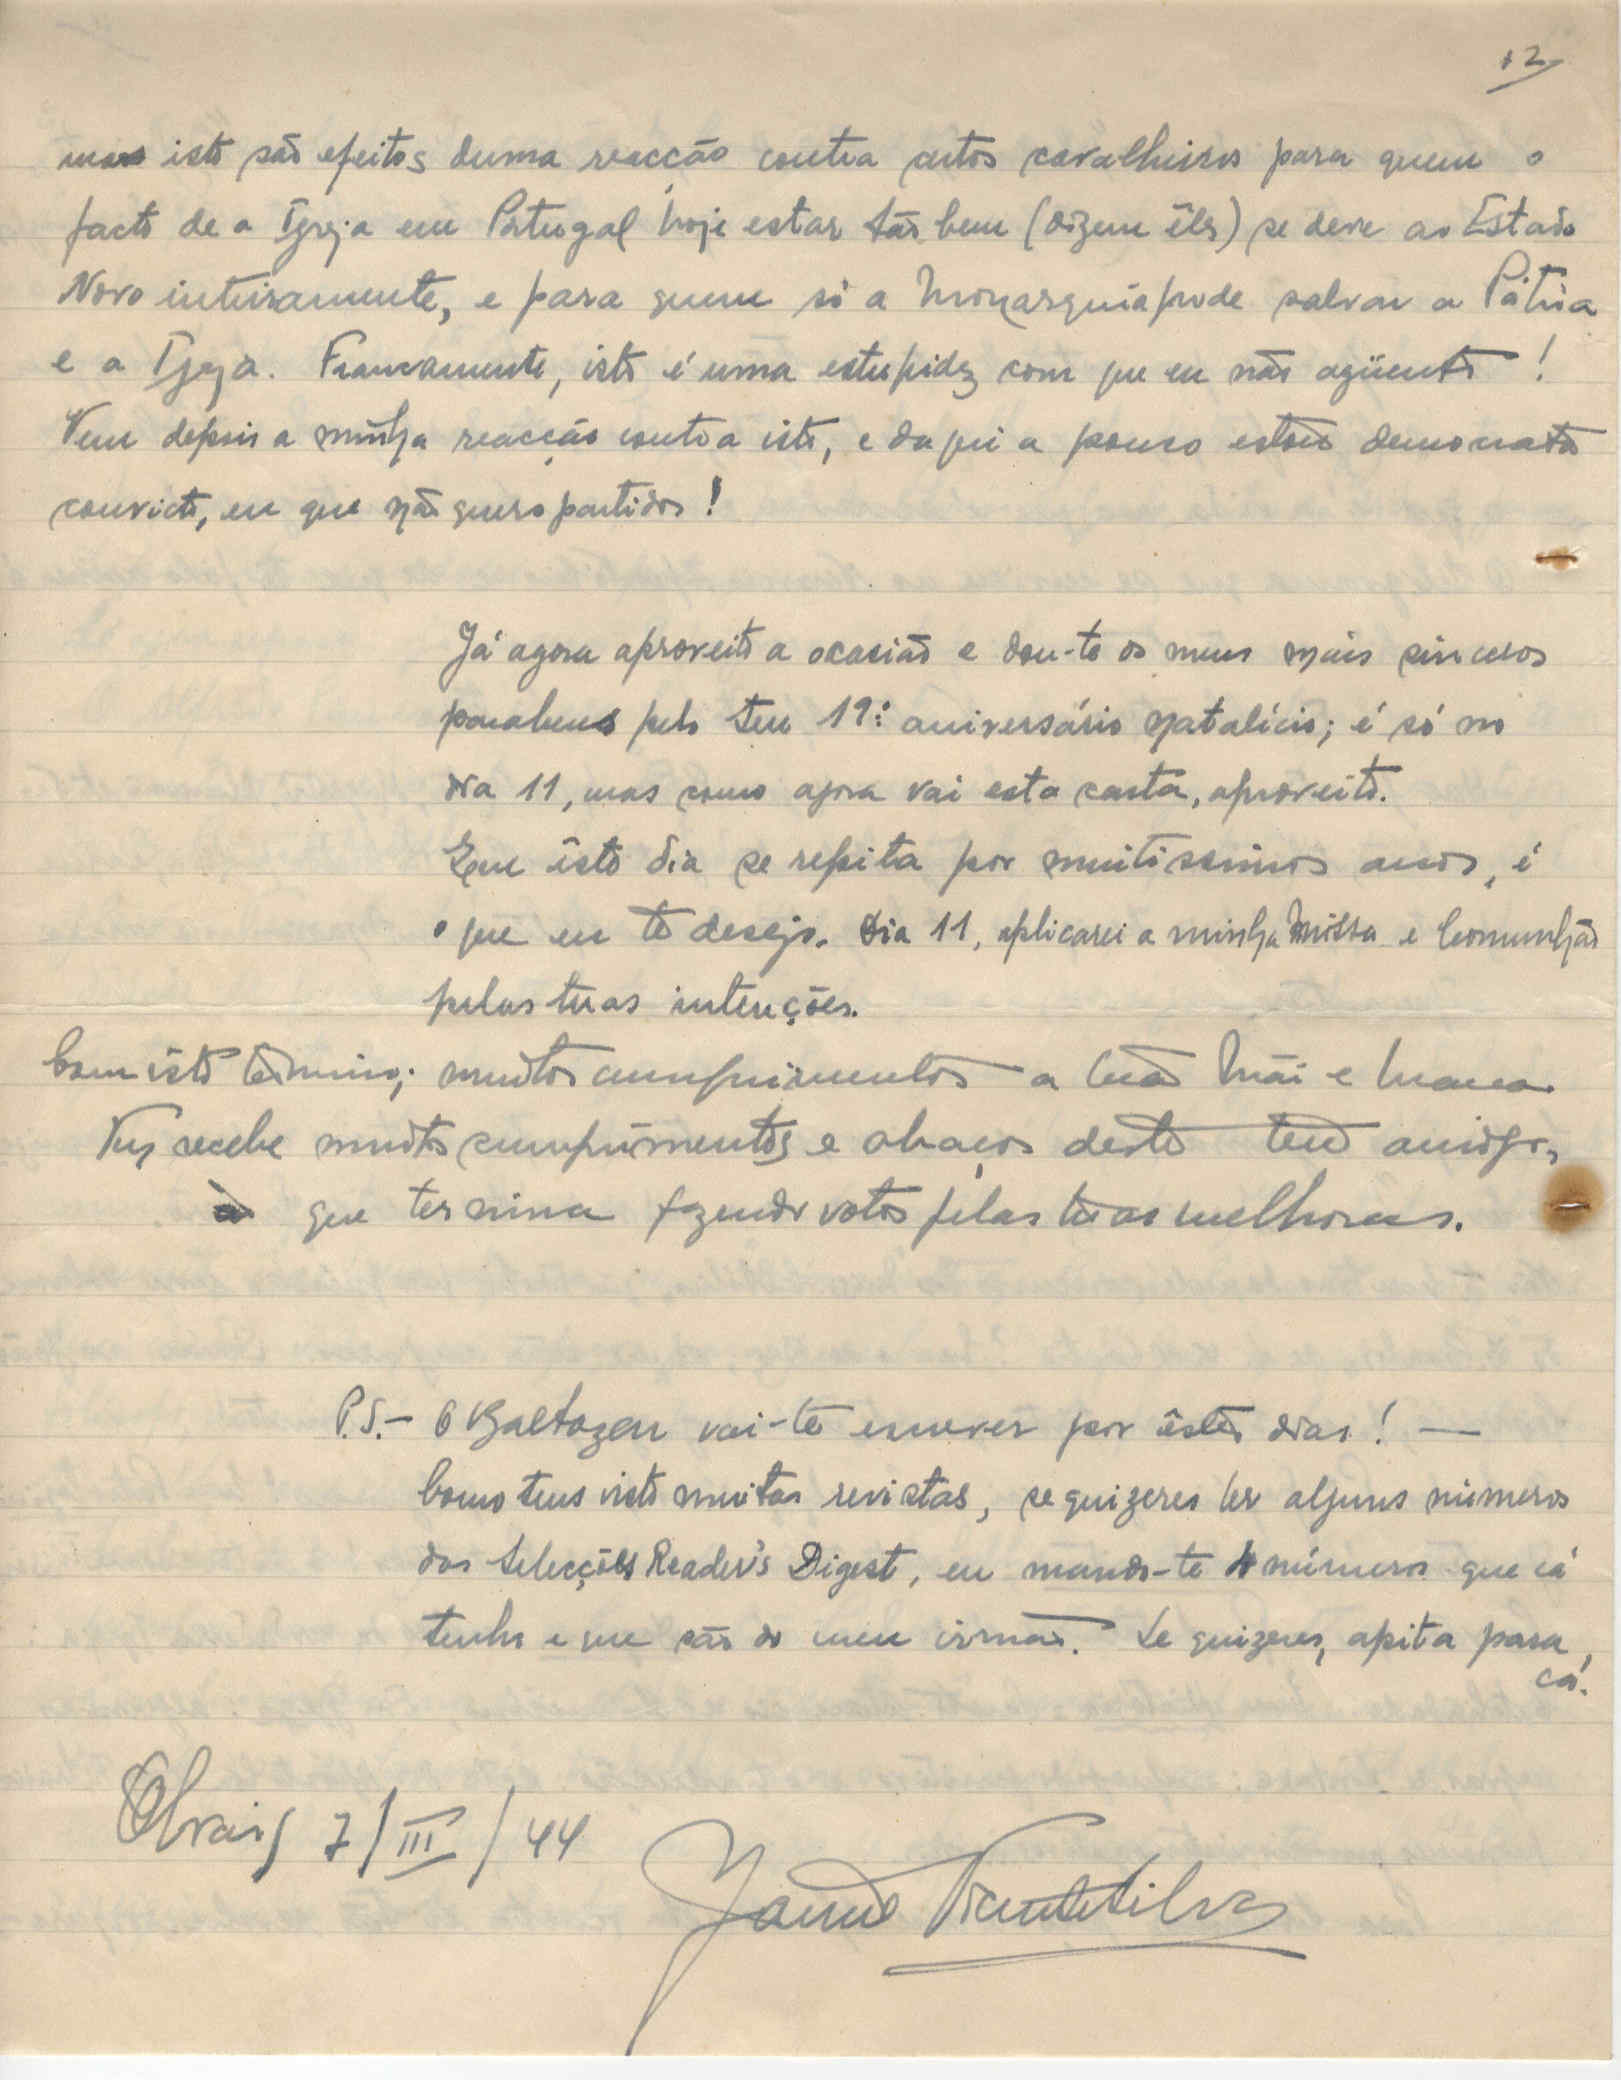 12
mas isto são efeitos duma reacção contra certos cavalheiros para quem o
facto de a Igreja em Portugal hoje estar tão bem (dizem êles) se deve ao Estado
Novo inteiramente, e para quem só a Monarquia pode salvar a Pátria
e a Igreja. Francamente, isto é uma estupidez com que eu não agüento!
Vem depois a minha reacção contra isto, e daqui a pouco estou democrata
convicto, eu que não quero partidos!
Já agora aproveito a ocasião e dou-te os meus mais sinceros
parabens pelo teu 19º aniversário natalício; é só no
dia 11, mas como agora vai esta carta, aproveito.
Que êste dia se repita por muitissimos anos, é
o que eu te desejo. Dia 11, aplicarei a minha Missa e Comunhão
pelas tuas intenções.
Com isto termino; muitos cumprimentos a tua Mãi e Mana.
Tu recebe muitos cumprimentos e abraços deste teu amigo,
que termina fazendo votos pelas tuas melhoras.
P.S.- O Baltazar vai-te escrever por êstes dias! —
Como tens visto muitas revistas, se quizeres ler alguns números
das Selecções Reader's Digest, eu mando-te 4 números que cá
tenho e que são do meu irmão. Se quizeres, apita para
cá!
Olivais 7/III/44